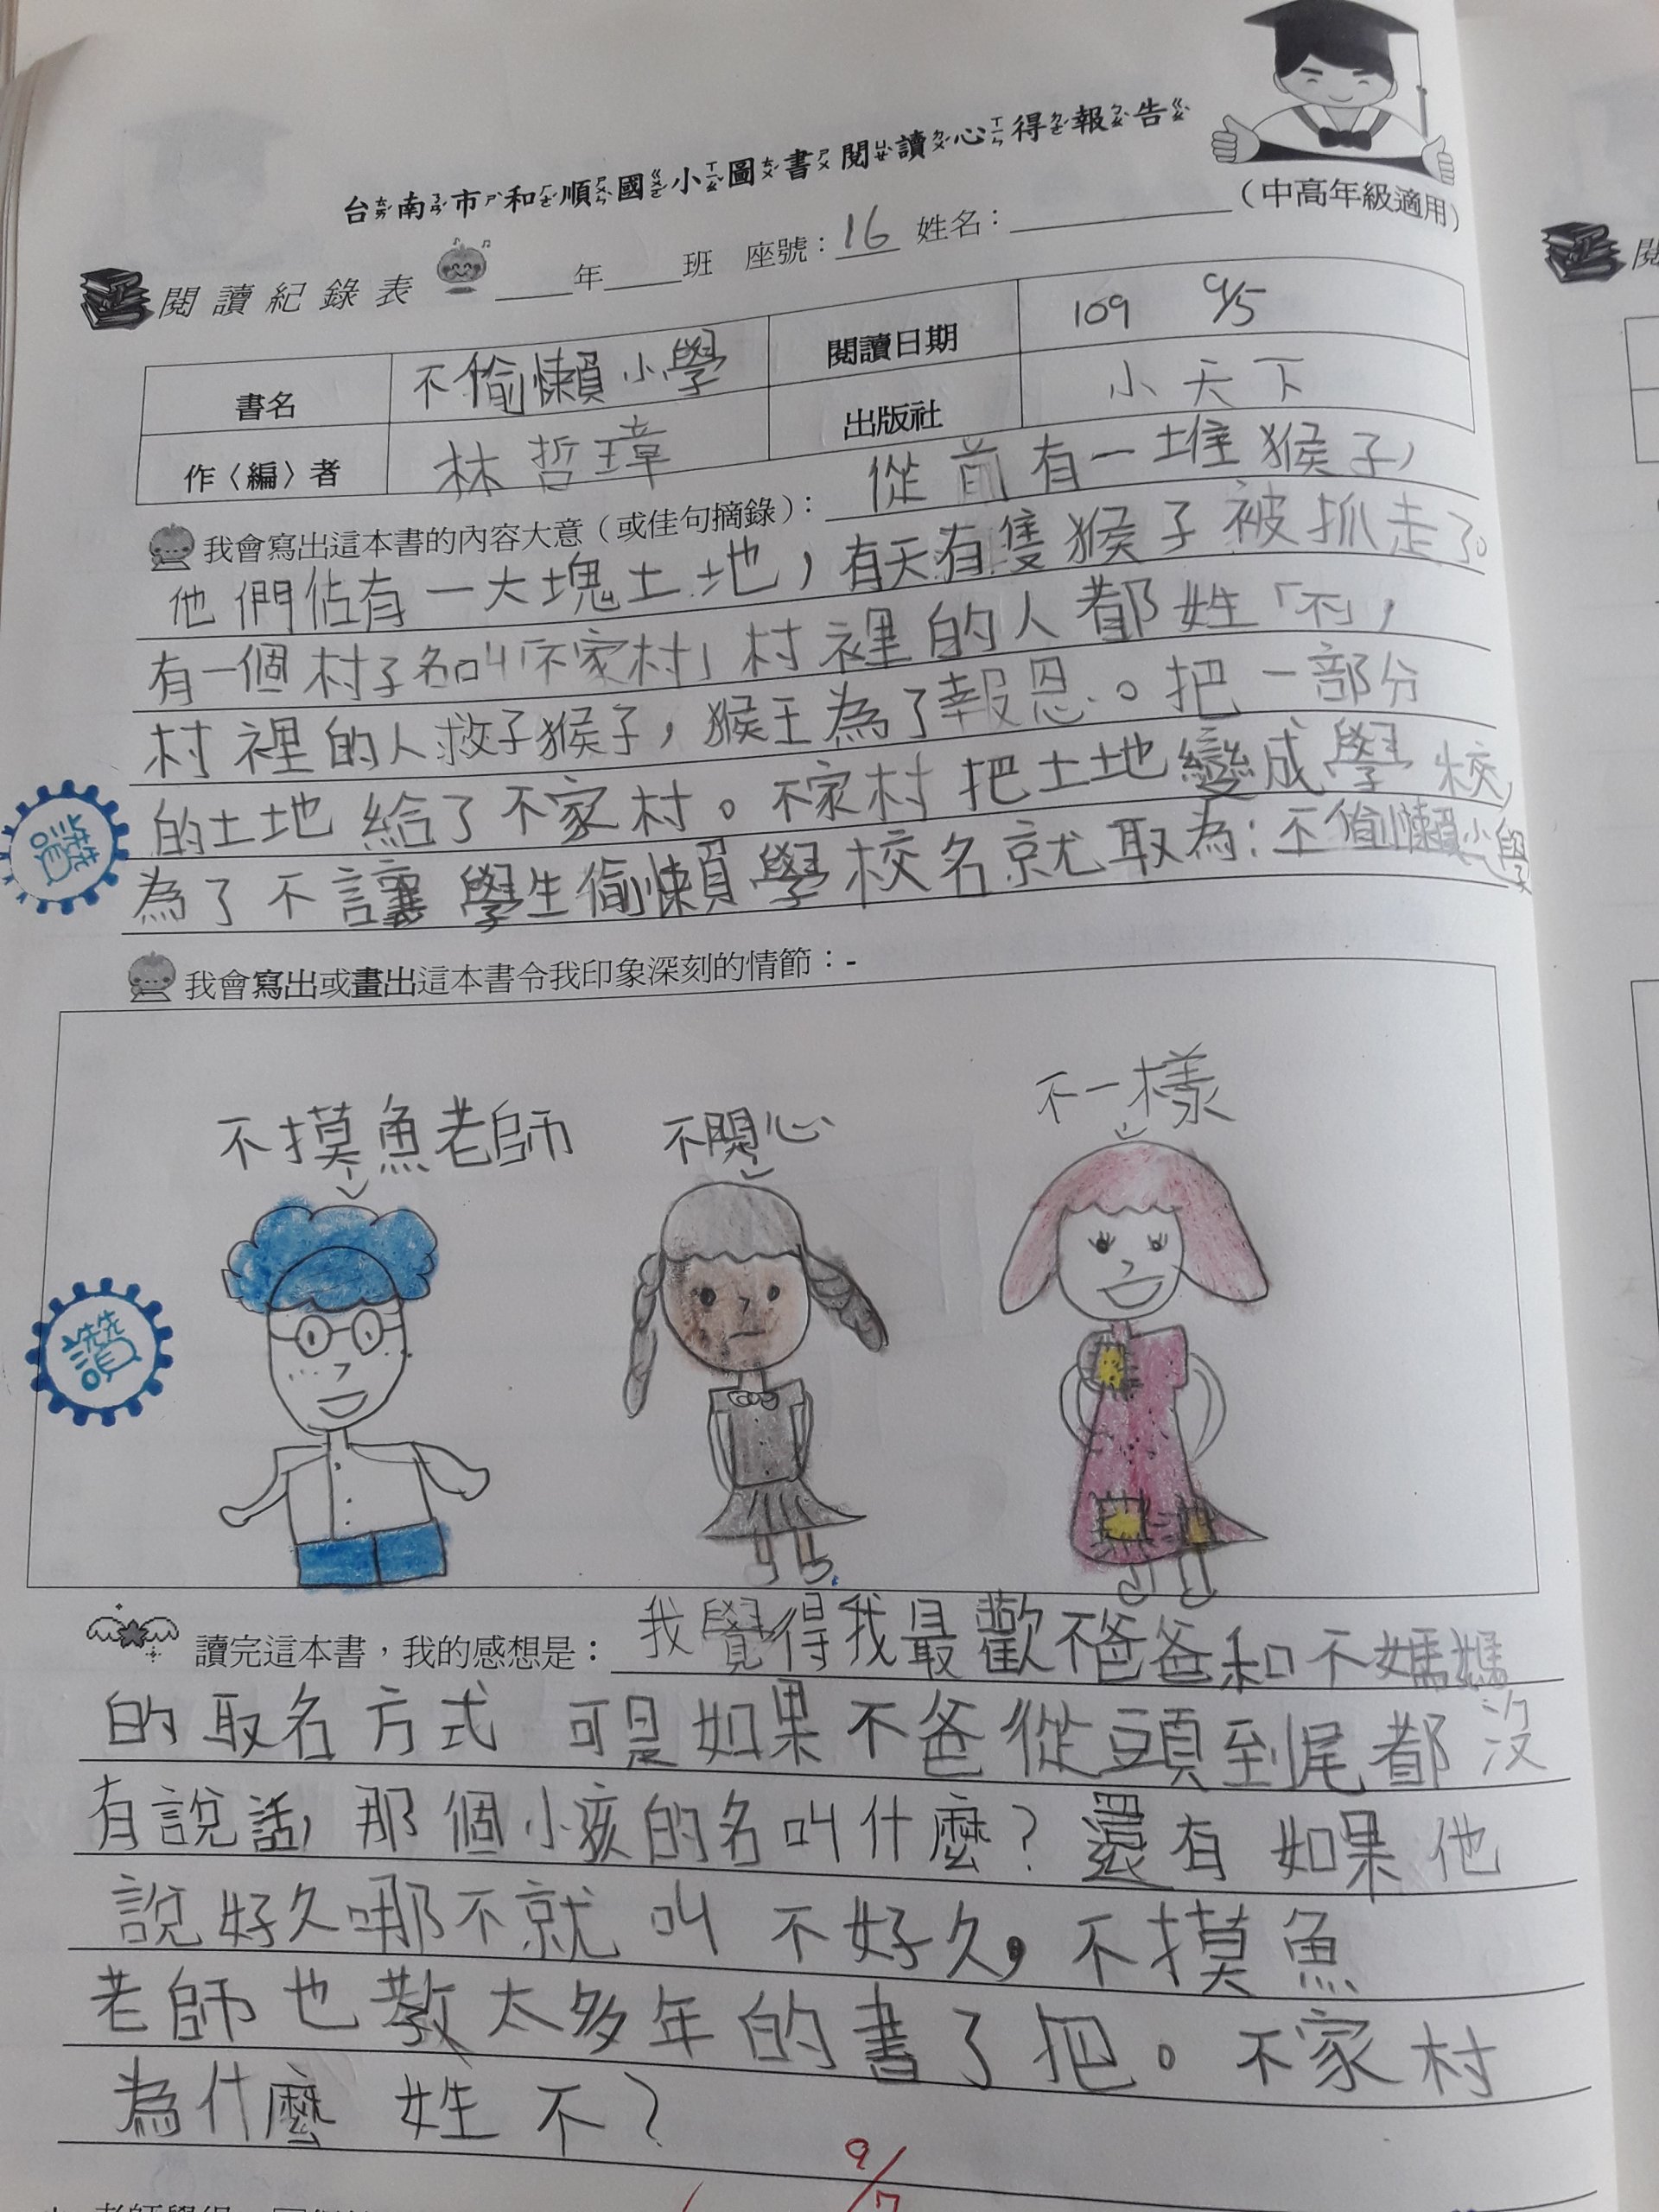 台南市和順國小圖書閱讀心得報告
(中高年級適用)
閱讀紀錄表 ____年____班 座號：16 姓名：
書名 不偷懶小學 閱讀日期 109 9/5
作〈編〉者 林哲璋 出版社 小天下
我會寫出這本書的內容大意（或佳句摘錄）： 從前有一堆猴子，
他們佔有一大塊土地，有天有隻猴子被抓走了。
有一個村子名叫「不家村」村裡的人都姓「不」，
村裡的人救了猴子，猴王為了報恩。把一部分
的土地給了不家村。不家村把土地變成學校，
為了不讓學生偷懶學校名就取為：不偷懶小學
讚
我會寫出或畫出這本書令我印象深刻的情節：-
不摸魚老師 不開心 不一樣
讚
讀完這本書，我的感想是： 我覺得我最歡不爸爸和不媽媽
的取名方式 可是如果不爸從頭到尾都沒
有說話，那個小孩的名叫什麼？還有如果他
說好久哪不就叫不好久，不摸魚
老師也教太多年的書了把。不家村
為什麼姓不？
9/7